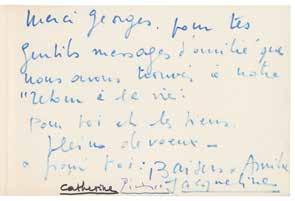 Merci Georges. pour tes
gentils messages d'amitié que
nous avons trouvés à notre
"retour à la vie".
Pour toi et les tiens.
pleins de voeux -
pour toi: Baisers - Amitié
Catherine Pierre Jacqueline